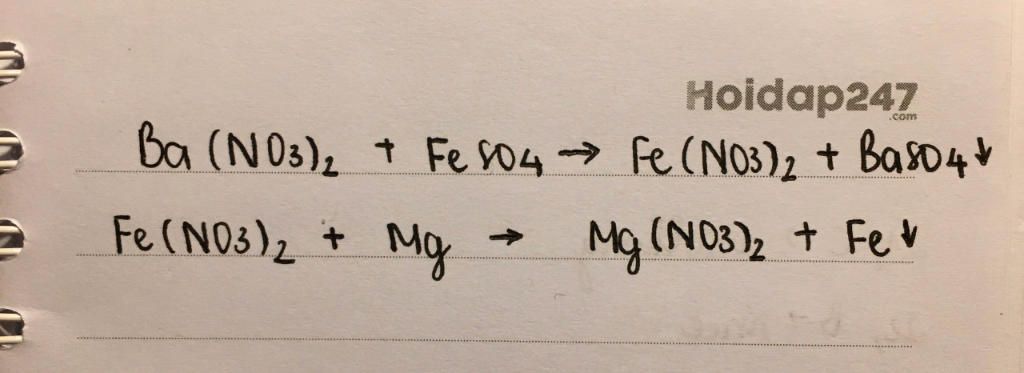 Hoidap247
.com
Ba(NO3)2 + FeSO4 → Fe(NO3)2 + BaSO4↓
Fe(NO3)2 + Mg → Mg(NO3)2 + Fe↓